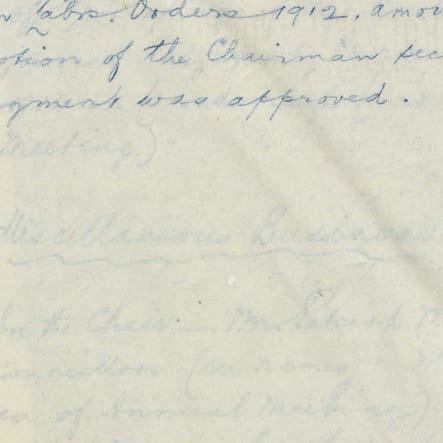 Labs. Orders 1912, amou
otion of the Chairman sec
gment was approved.
Meeting)
Miscellaneous Business
In the Chair — Mr.
Councillors (see names
of Annual Meeting)